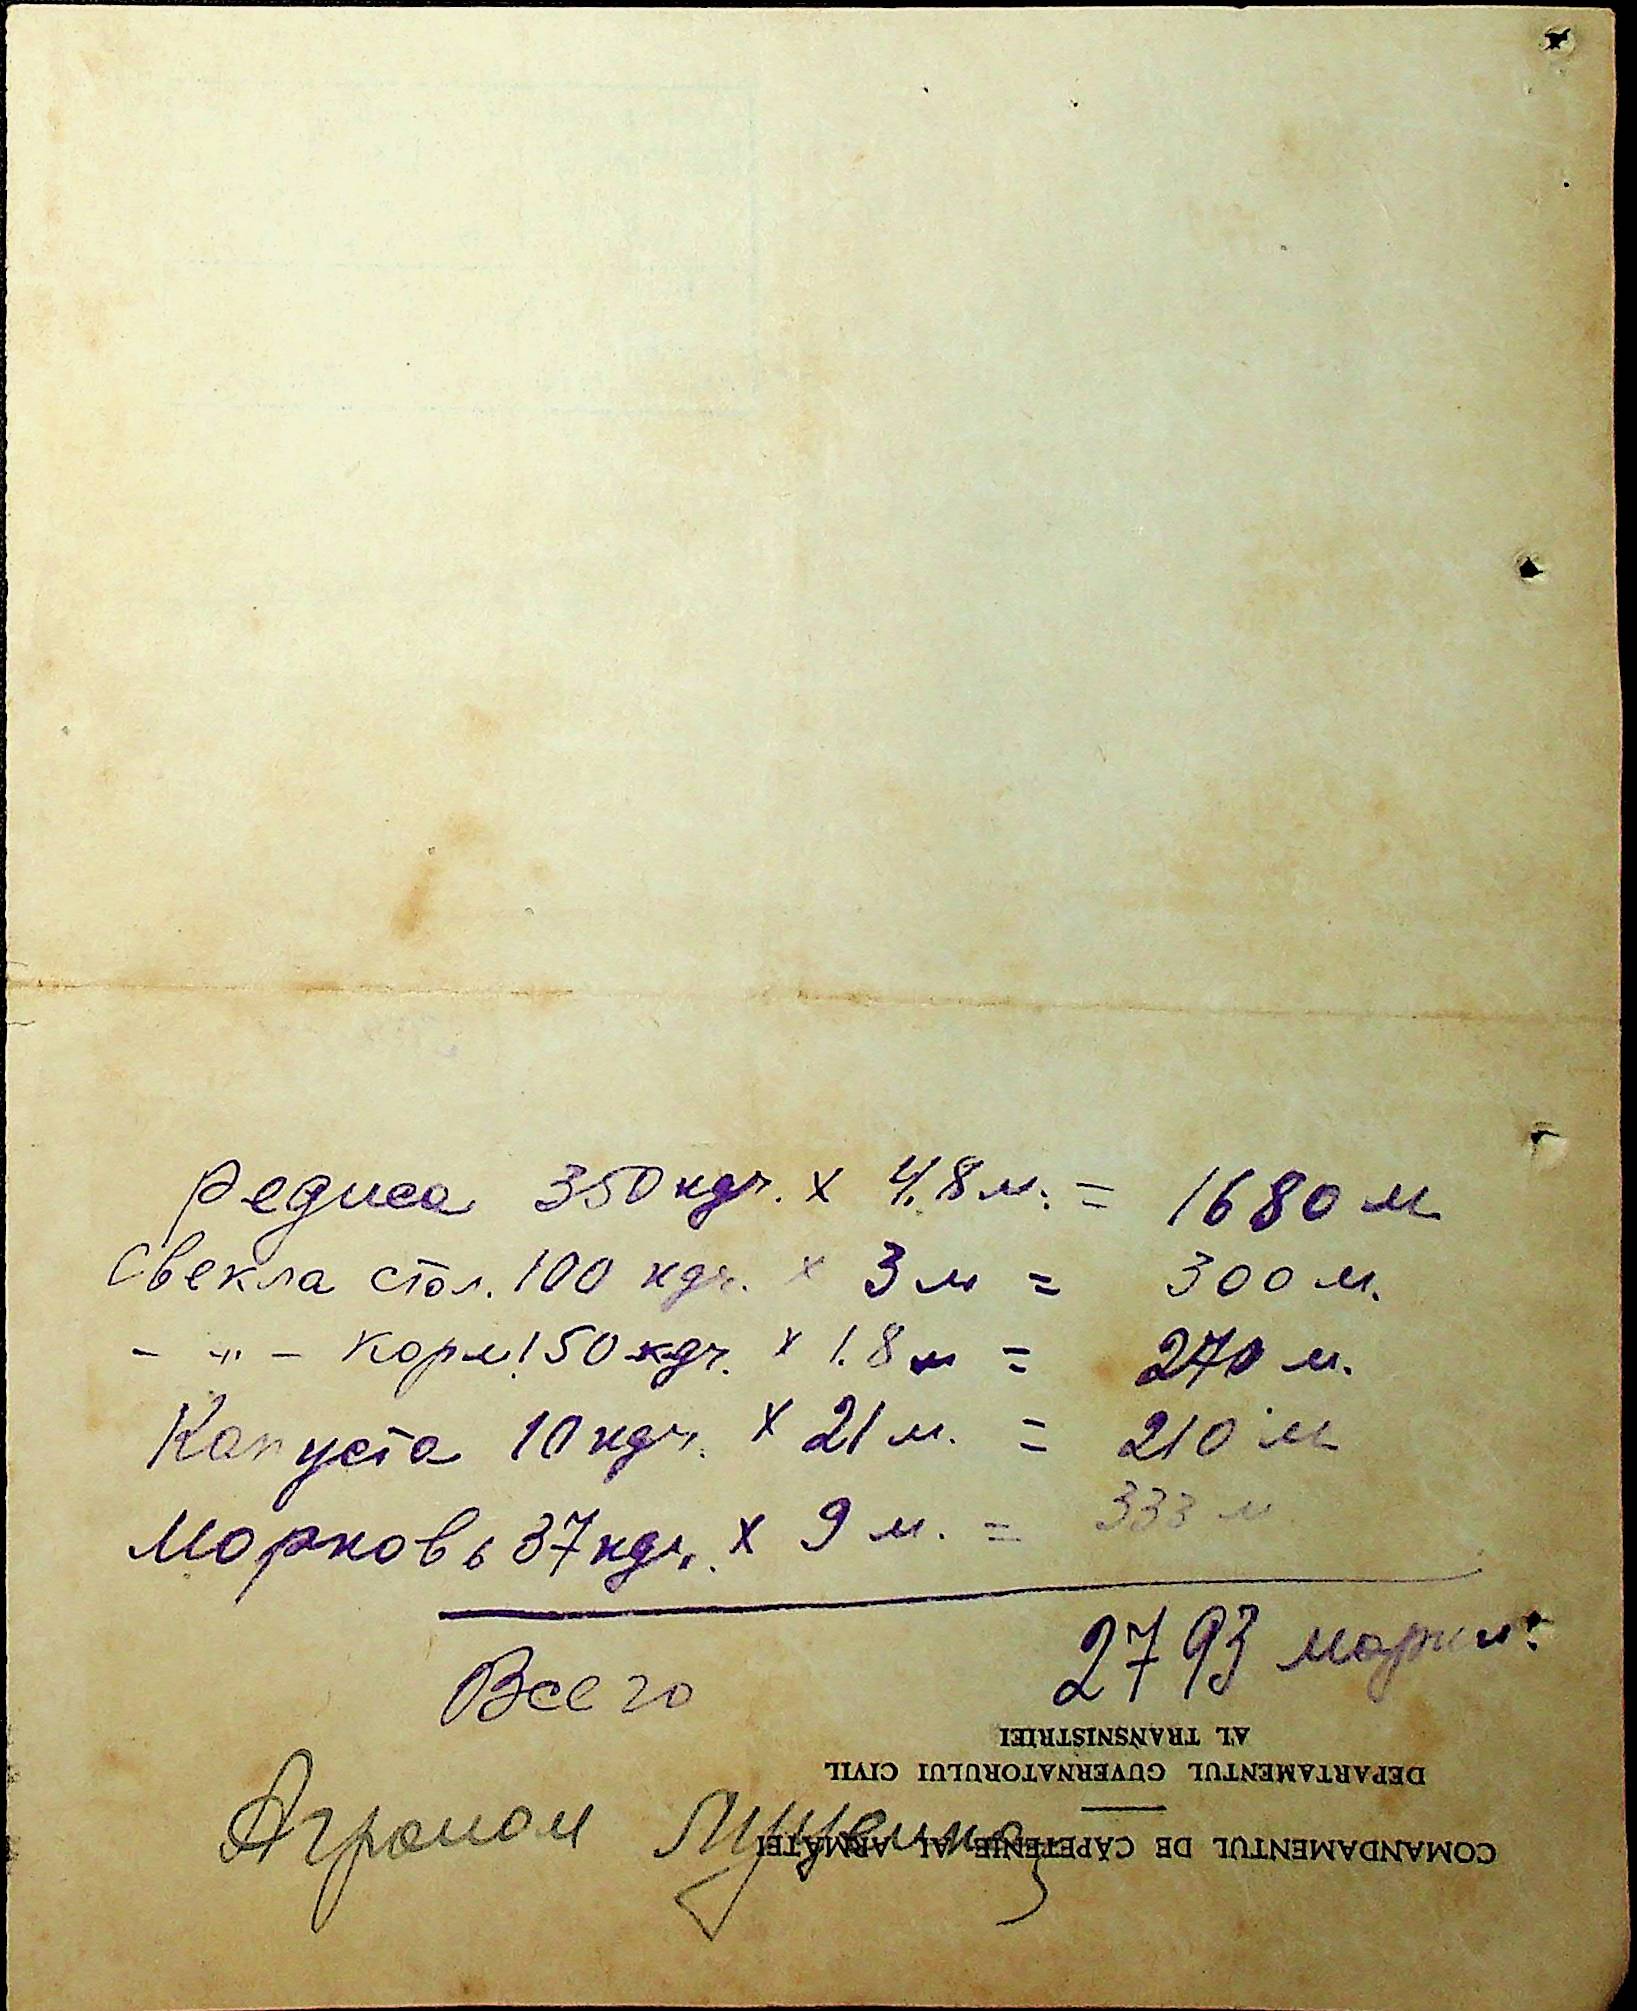 Редиса 350 кгр. х 4.8 м. = 1680 м
Свекла стол. 100 кгр. х 3 м = 300 м.
- „ - корм. 150 кгр. х 1.8 м = 270 м.
Капуста 10 кгр. х 21 м. = 210 м
Морковь 37 кгр. х 9 м. = 333 м
Всего 2793 марки.
Агроном
COMANDAMENTUL DE CĂPETENIE AL ARMATEI
DEPARTAMENTUL GUVERNATORULUI CIVIL
AL TRANSNISTRIEI